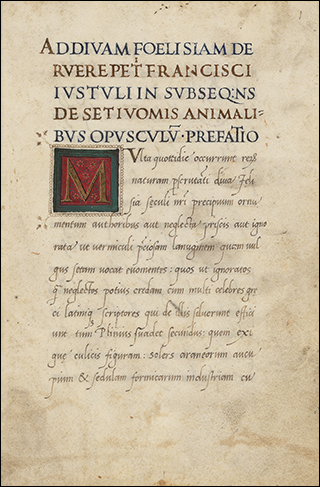 AD DIVAM FOELISIAM DE
RVERE PET FRANCISCI
IVSTVLI IN SVBSEQ:NS
DE SETIVOMIS ANIMALI-
BVS OPVSCVLV̄ · PREFATIO
MVlta quottidie occurrunt reȝ
naturam pscrutāti diua Feli
sia seculi nr̄i precipuum ornu
mentum authoribus aut neglecta priscis aut igno
rata, ut vermiculi p̄ciosam lanuginem quam uul
gus setam uocat euomentes: quos ut ignoratos
q̄ neglectos potius credam cum multi celebres gre
ci latiniq; scriptores qui de illis siluerunt effici
unt tum Plinius suadet secundus: quem exi
gue culicis figuram: solers aranearum aucu
pium & sedulam formicarum industriam cu